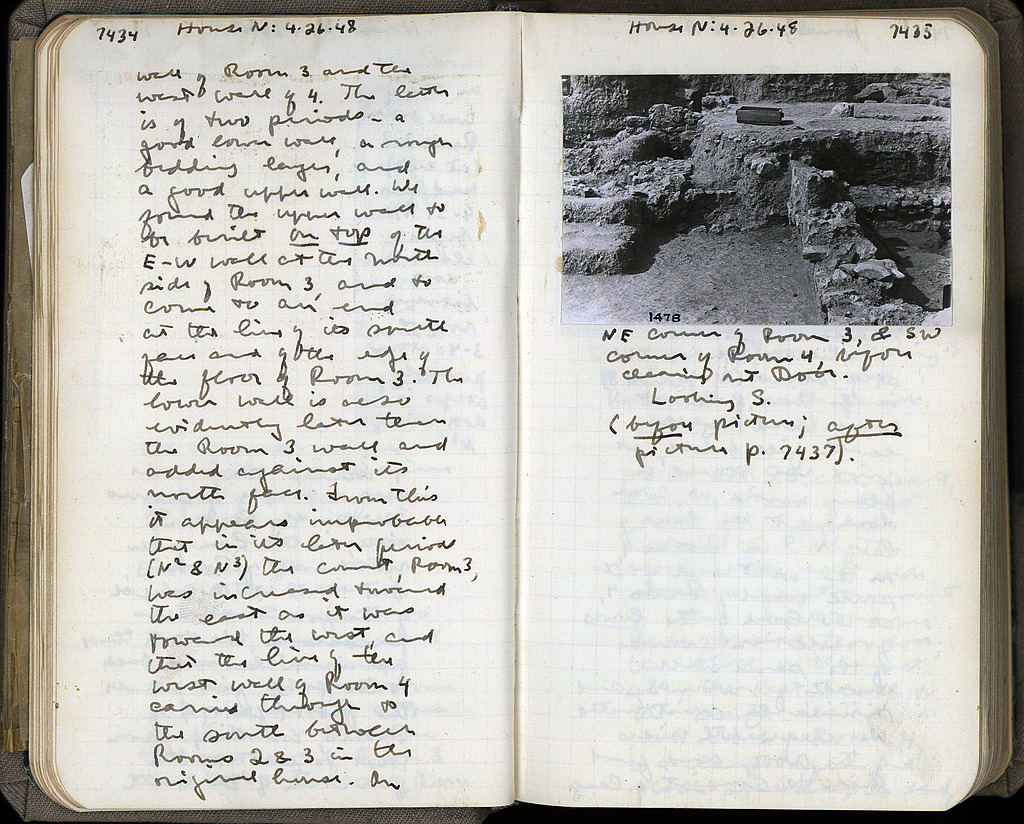 7434 House N: 4.26.48
wall of Room 3 and the
west wall of 4. The latter
is of two periods – a
good lower wall, a rough
bedding layer, and
a good upper wall. We
found the upper wall to
be built on top of the
E-W wall at the north
side of Room 3, and to
come to an end
at the line of its south
face and of the edge of
the floor of Room 3. The
lower wall is also
evidently later than
the Room 3 wall and
added against its
north face. From this
it appears improbable
that in its later period
(N² & N³) the court, Room 3,
was increased toward
the east as it was
toward the west, and
that the line of the
west wall of Room 4
carried through to
the south between
Rooms 2 & 3 in the
original house. In
House N: 4.26.48 7435
1478
NE corner of Room 3, & SW
corner of Room 4, before
cleaning out Door.
Looking S.
(before picture; after
picture p. 7437).